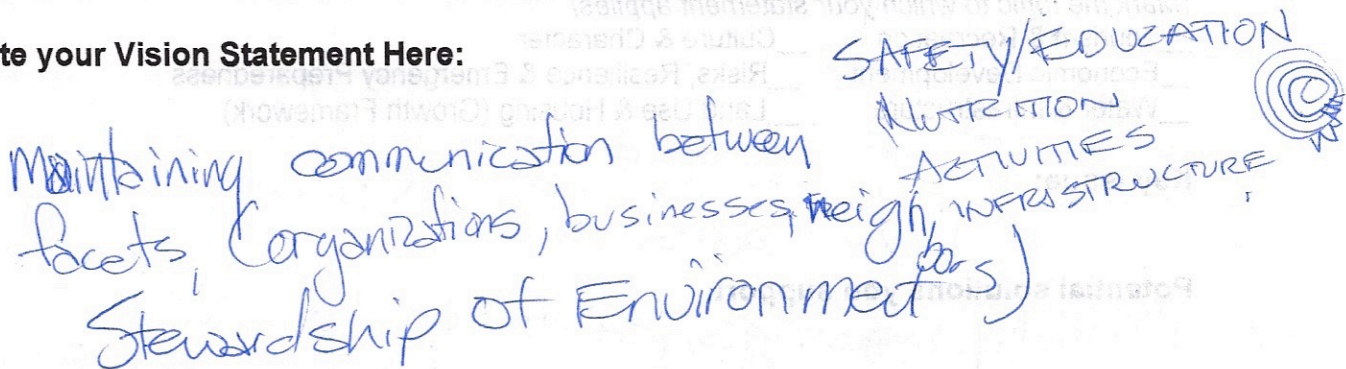 te your Vision Statement Here:
SAFETY/EDUCATION
NUTRITION
ACTIVITIES
INFRISTRUCTURE
Maintaining communication between
facets, (organizations, businesses, neighbors)
Stewardship of Environment